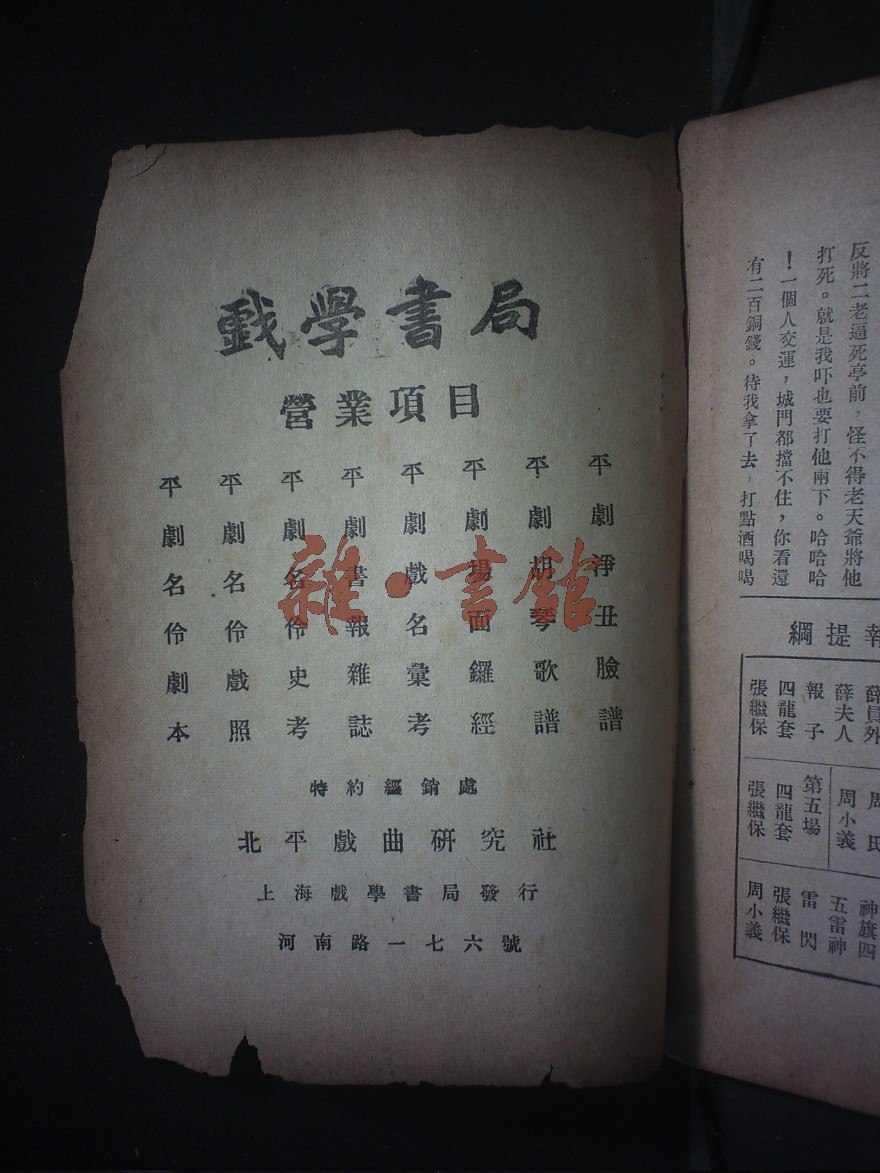 戲學書局
營業項目
平劇淨丑臉譜
平劇胡琴歌譜
平劇場面鑼經
平劇戲名彙考
平劇書報雜誌
平劇名伶史考
平劇名伶戲照
平劇名伶劇本
特約經銷處
北平戲曲研究社
上海戲學書局發行
河南路一七六號
雜·書館
反將二老逼死亭前，怪不得老天爺將他
打死。就是我吓也要打他兩下。哈哈哈
！一個人交運，城門都擋不住，你看還
有二百銅錢。待我拿了去，打點酒喝喝
報提綱
薛員外
薛夫人
報子
四龍套
張繼保
周氏
周小義
第五場
四龍套
張繼保
神旗四
五雷神
雷閃
張繼保
周小義